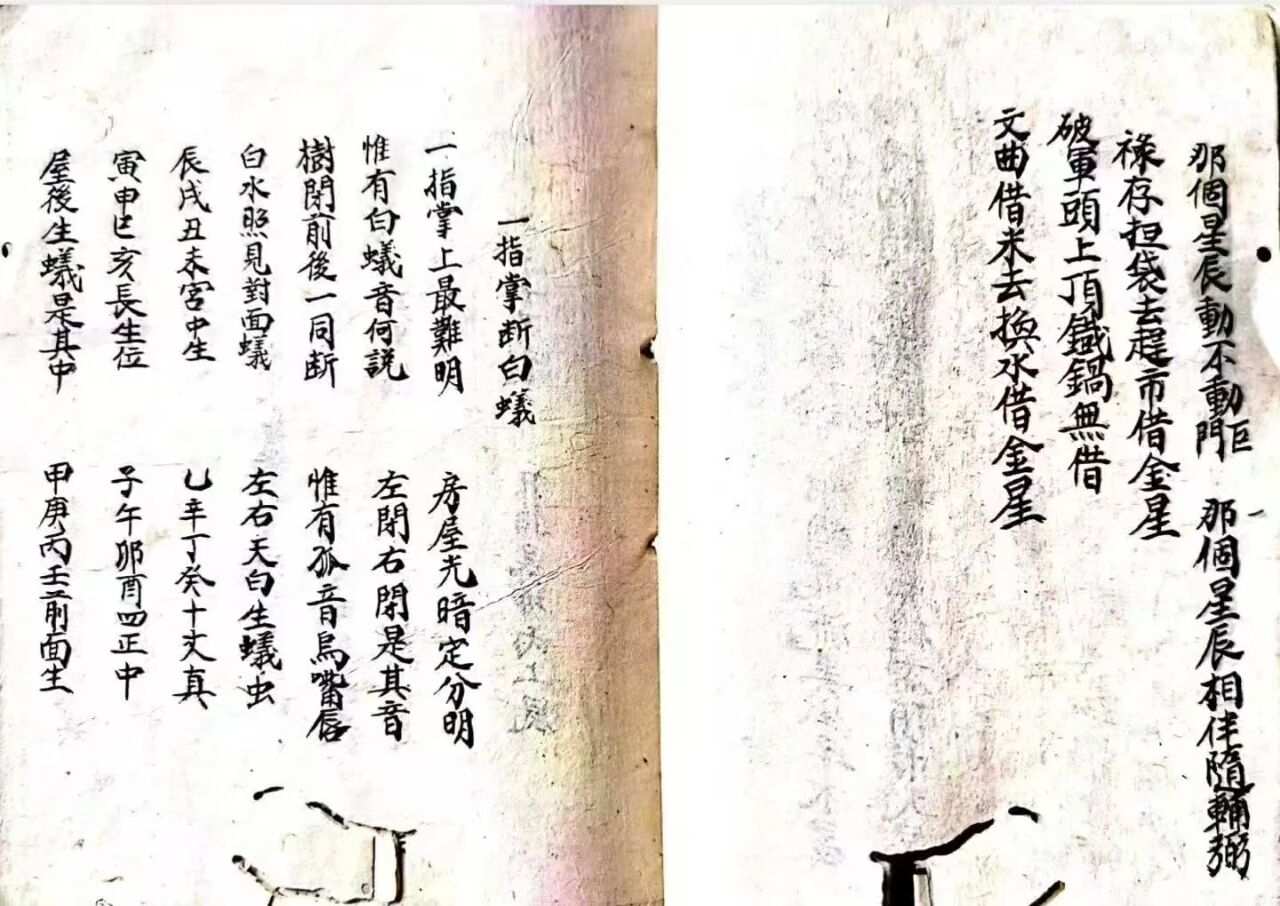 那個星辰動不動巨門 那個星辰相伴隨輔弼
祿存担袋去趕市借金星
破軍頭上頂鐵鍋無借
文曲借米去換水借金星
一指掌断白蟻
一指掌上最難明 房屋光暗定分明
惟有白蟻音何説 左閉右閉是其音
樹閉前後一同断 惟有孤音烏嘴唇
白水照見對面蟻 左右天白生蟻虫
辰戌丑未宮中生 乙辛丁癸十丈真
寅申巳亥長生位 子午卯酉四正中
屋後生蟻是其中 甲庚丙壬前面生